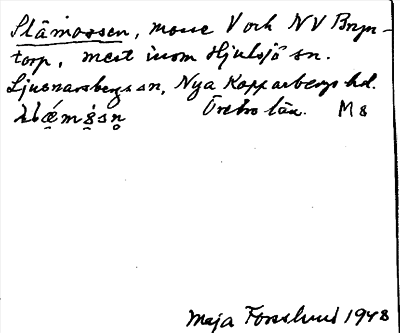 Slåmossen, mosse V och NV Bryn-
torp, mest inom Hjulsjö sn.
Ljusnarsbergs sn, Nya Kopparbergs hd.
Örebro län. M8
Maja Forslund 1948